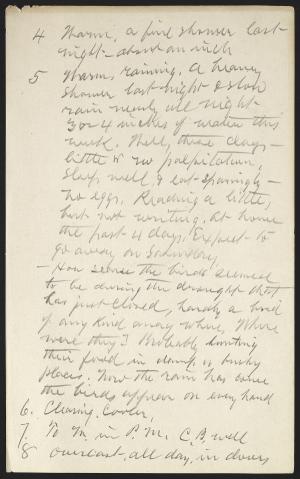 4 Warm, a fine shower last
night - about an inch
5 Warm, raining. A heavy
shower last night & slow
rain nearly all night
3 or 4 inches of water this
week. Well, these days -
little or no palpitation,
sleep well, & eat sparingly -
no eggs. Reading a little,
but not writing. At home
the past 4 days. Expect to
go away on Saturday.
- How scarce the birds seemed
to be during the drought that
has just closed, hardly a bird
of any kind any where. Where
were they? Probably hunting
their food in damp or bushy
places. Now the rain has come
the birds appear on every hand
6. Clearing, cooler,
7. To in P.M. C.B. well
8 overcast, all day, in doors